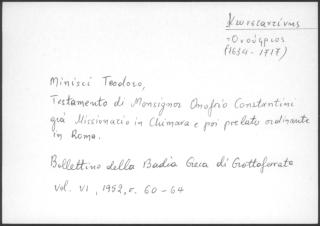 Κωνσταντίνης
Ὀνούφριος
(1634-1717)
Minisci Teodoro,
Testamento di Monsignor Onofrio Constantini
già Missionario in Chimara e poi prelato ordinante
in Roma.
Bollettino della Badia Greca di Grottaferrata
vol. VI, 1952, σ. 60-64